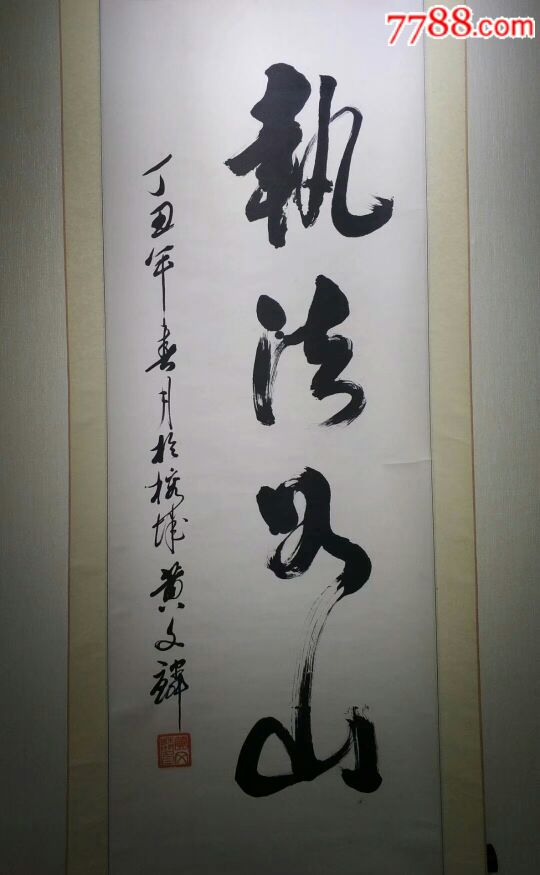 7788.com
執法如山
丁丑年春月於榕城黄文麟